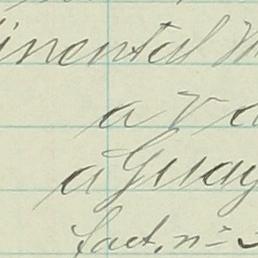 inental M
a v a
a Guay
fact, nº